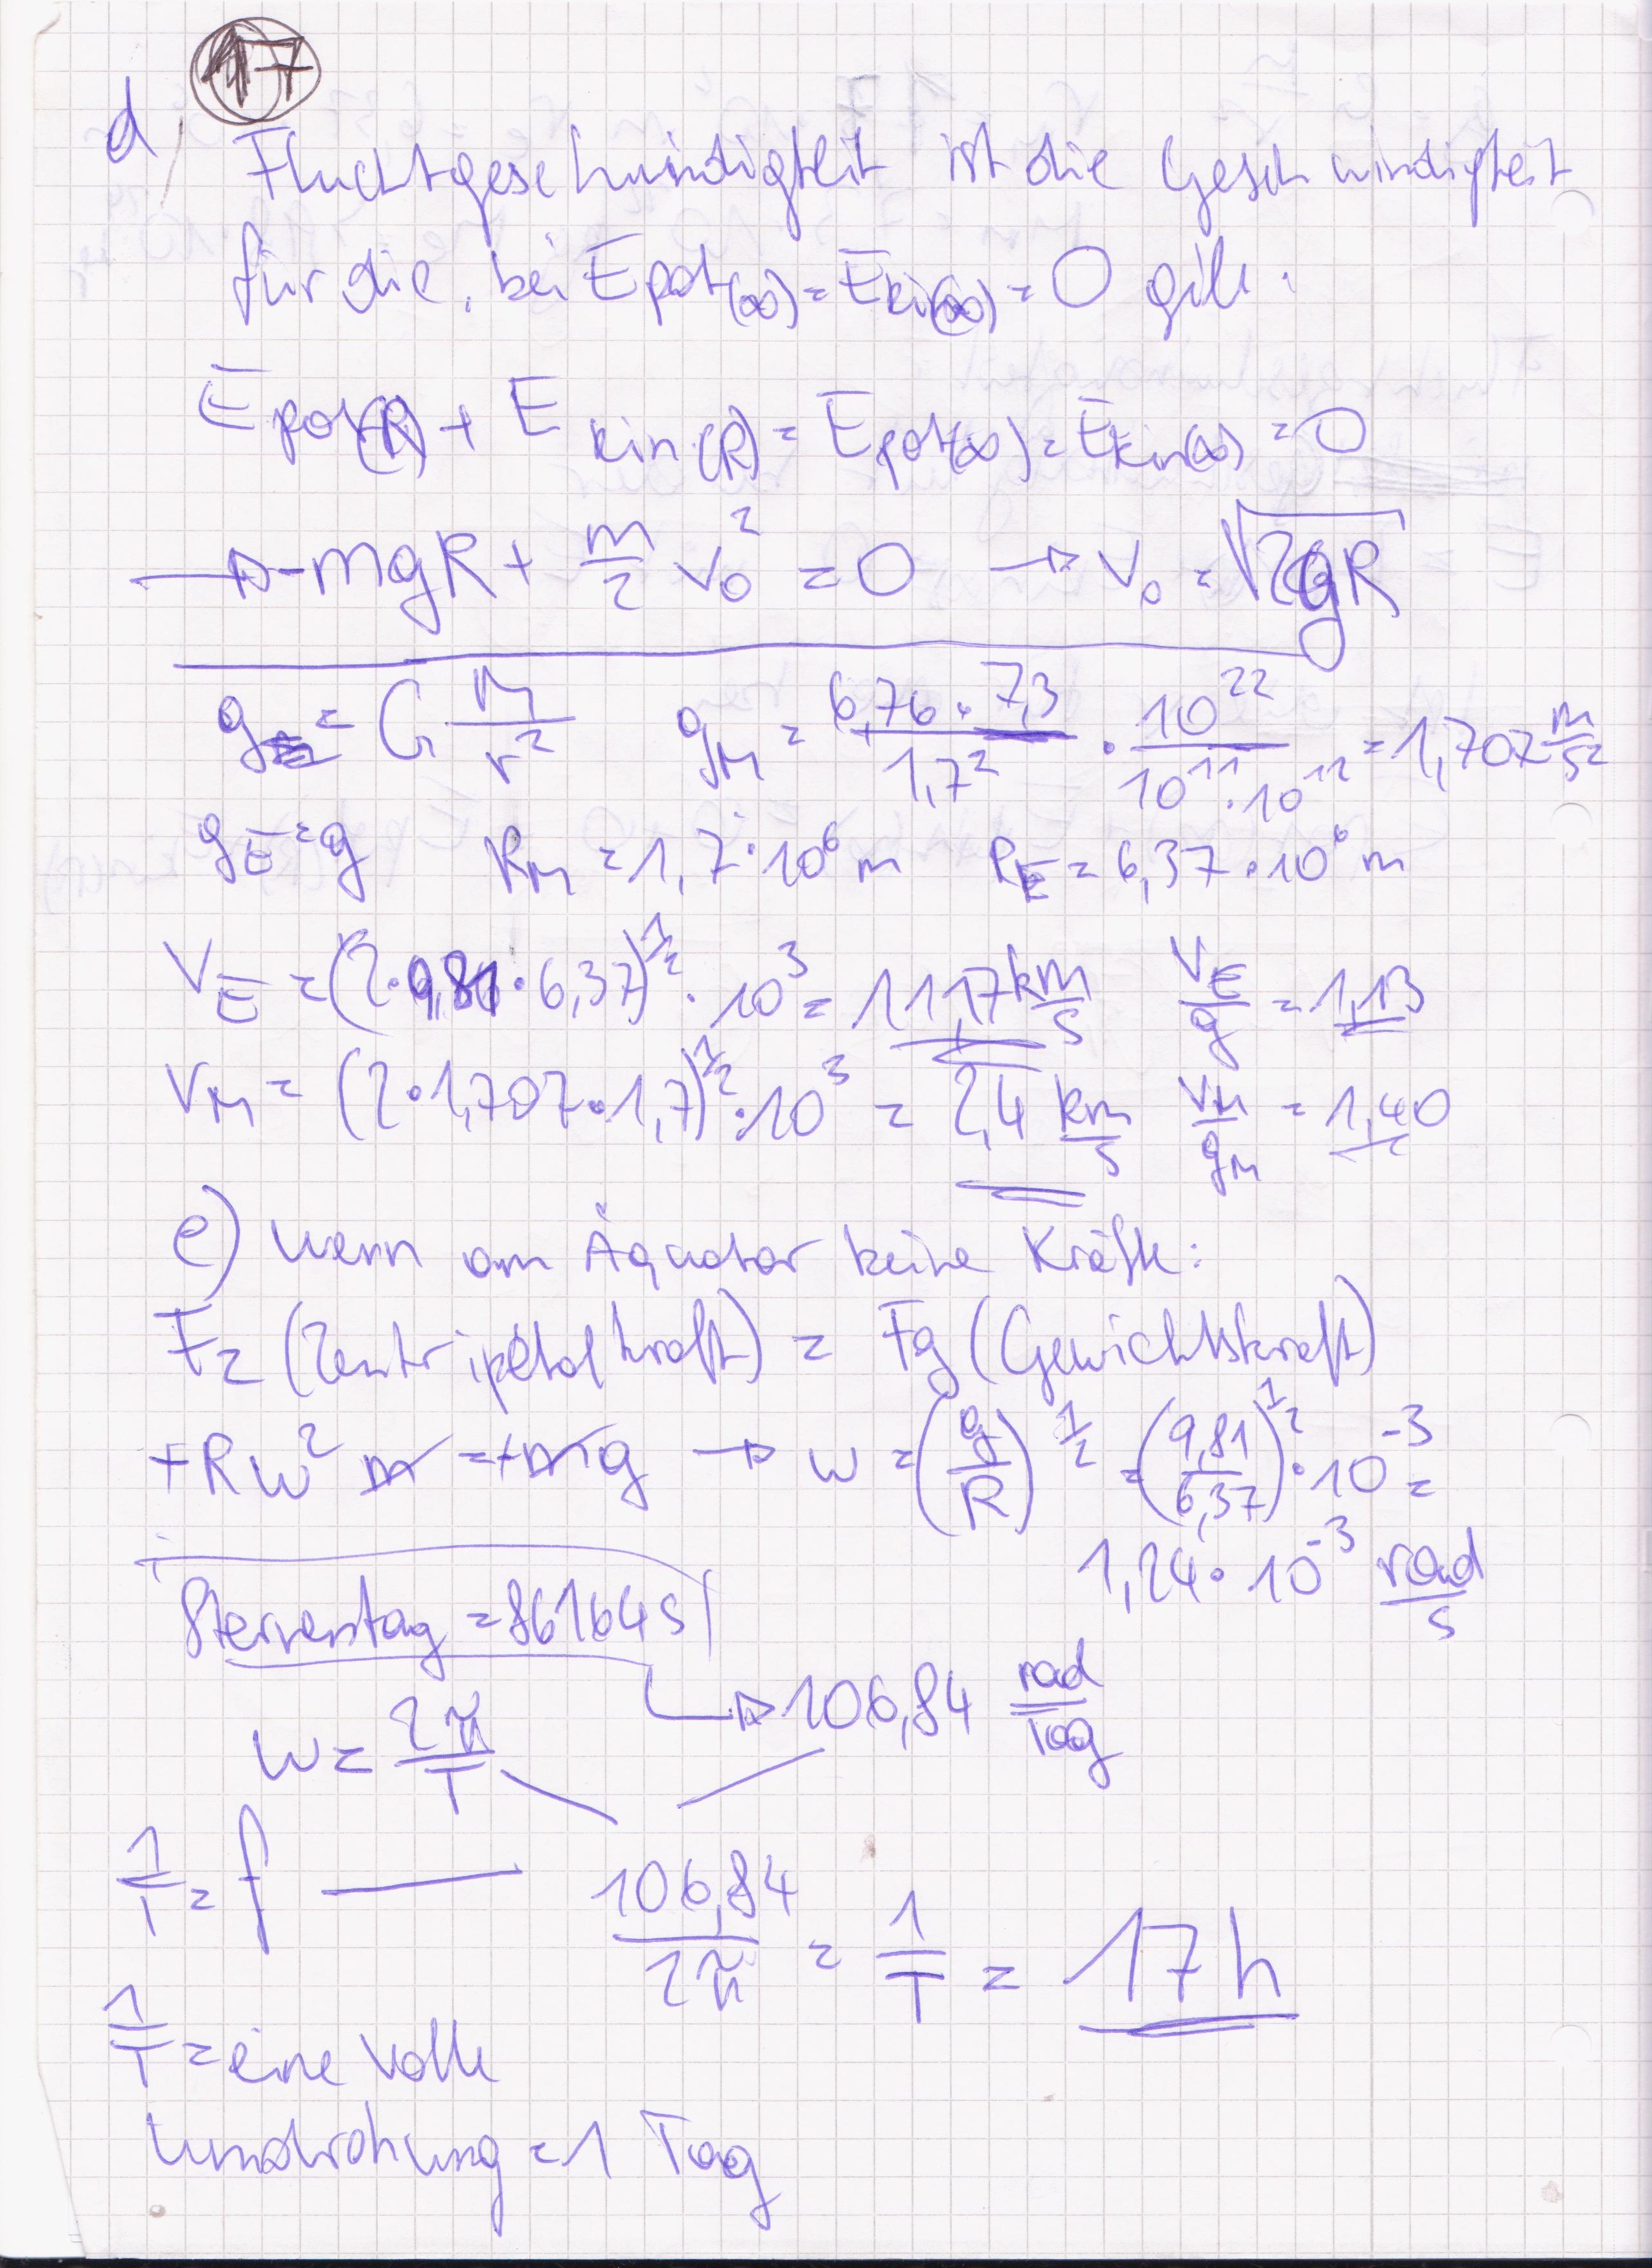 17
d
Fluchtgeschwindigkeit ist die Geschwindigkeit
für die, bei Epot(∞) = Ekin(∞) = 0 gilt:
Epot(R) + Ekin(R) = Epot(∞) = Ekin(∞) = 0
→ -mgR + m/2 v₀² = 0 → v₀ = √(2gR)
g = G M/r² g_M = (6,76 · 7,3)/1,7² · 10²²/(10¹¹ · 10¹²) = 1,707 m/s²
g_E = g R_M = 1,7 · 10⁶ m R_E = 6,37 · 10⁶ m
V_E = (2 · 9,81 · 6,37)^½ · 10³ = 11,17 km/s V_E/g = 1,13
V_M = (2 · 1,707 · 1,7)^½ · 10³ = 2,4 km/s V_M/g_M = 1,40
e) wenn am Äquator keine Kräfte:
Fz (Zentripetalkraft) = Fg (Gewichtskraft)
+Rw² m = +mg → w = (g/R)^½ = (9,81/6,37)^½ · 10⁻³ =
1,24 · 10⁻³ rad/s
Sternentag = 86164 s
→ 106,84 rad/Tag
w = 2π/T
1/T = f 106,84/2π = 1/T = 17 h
1/T = eine volle
Umdrehung = 1 Tag